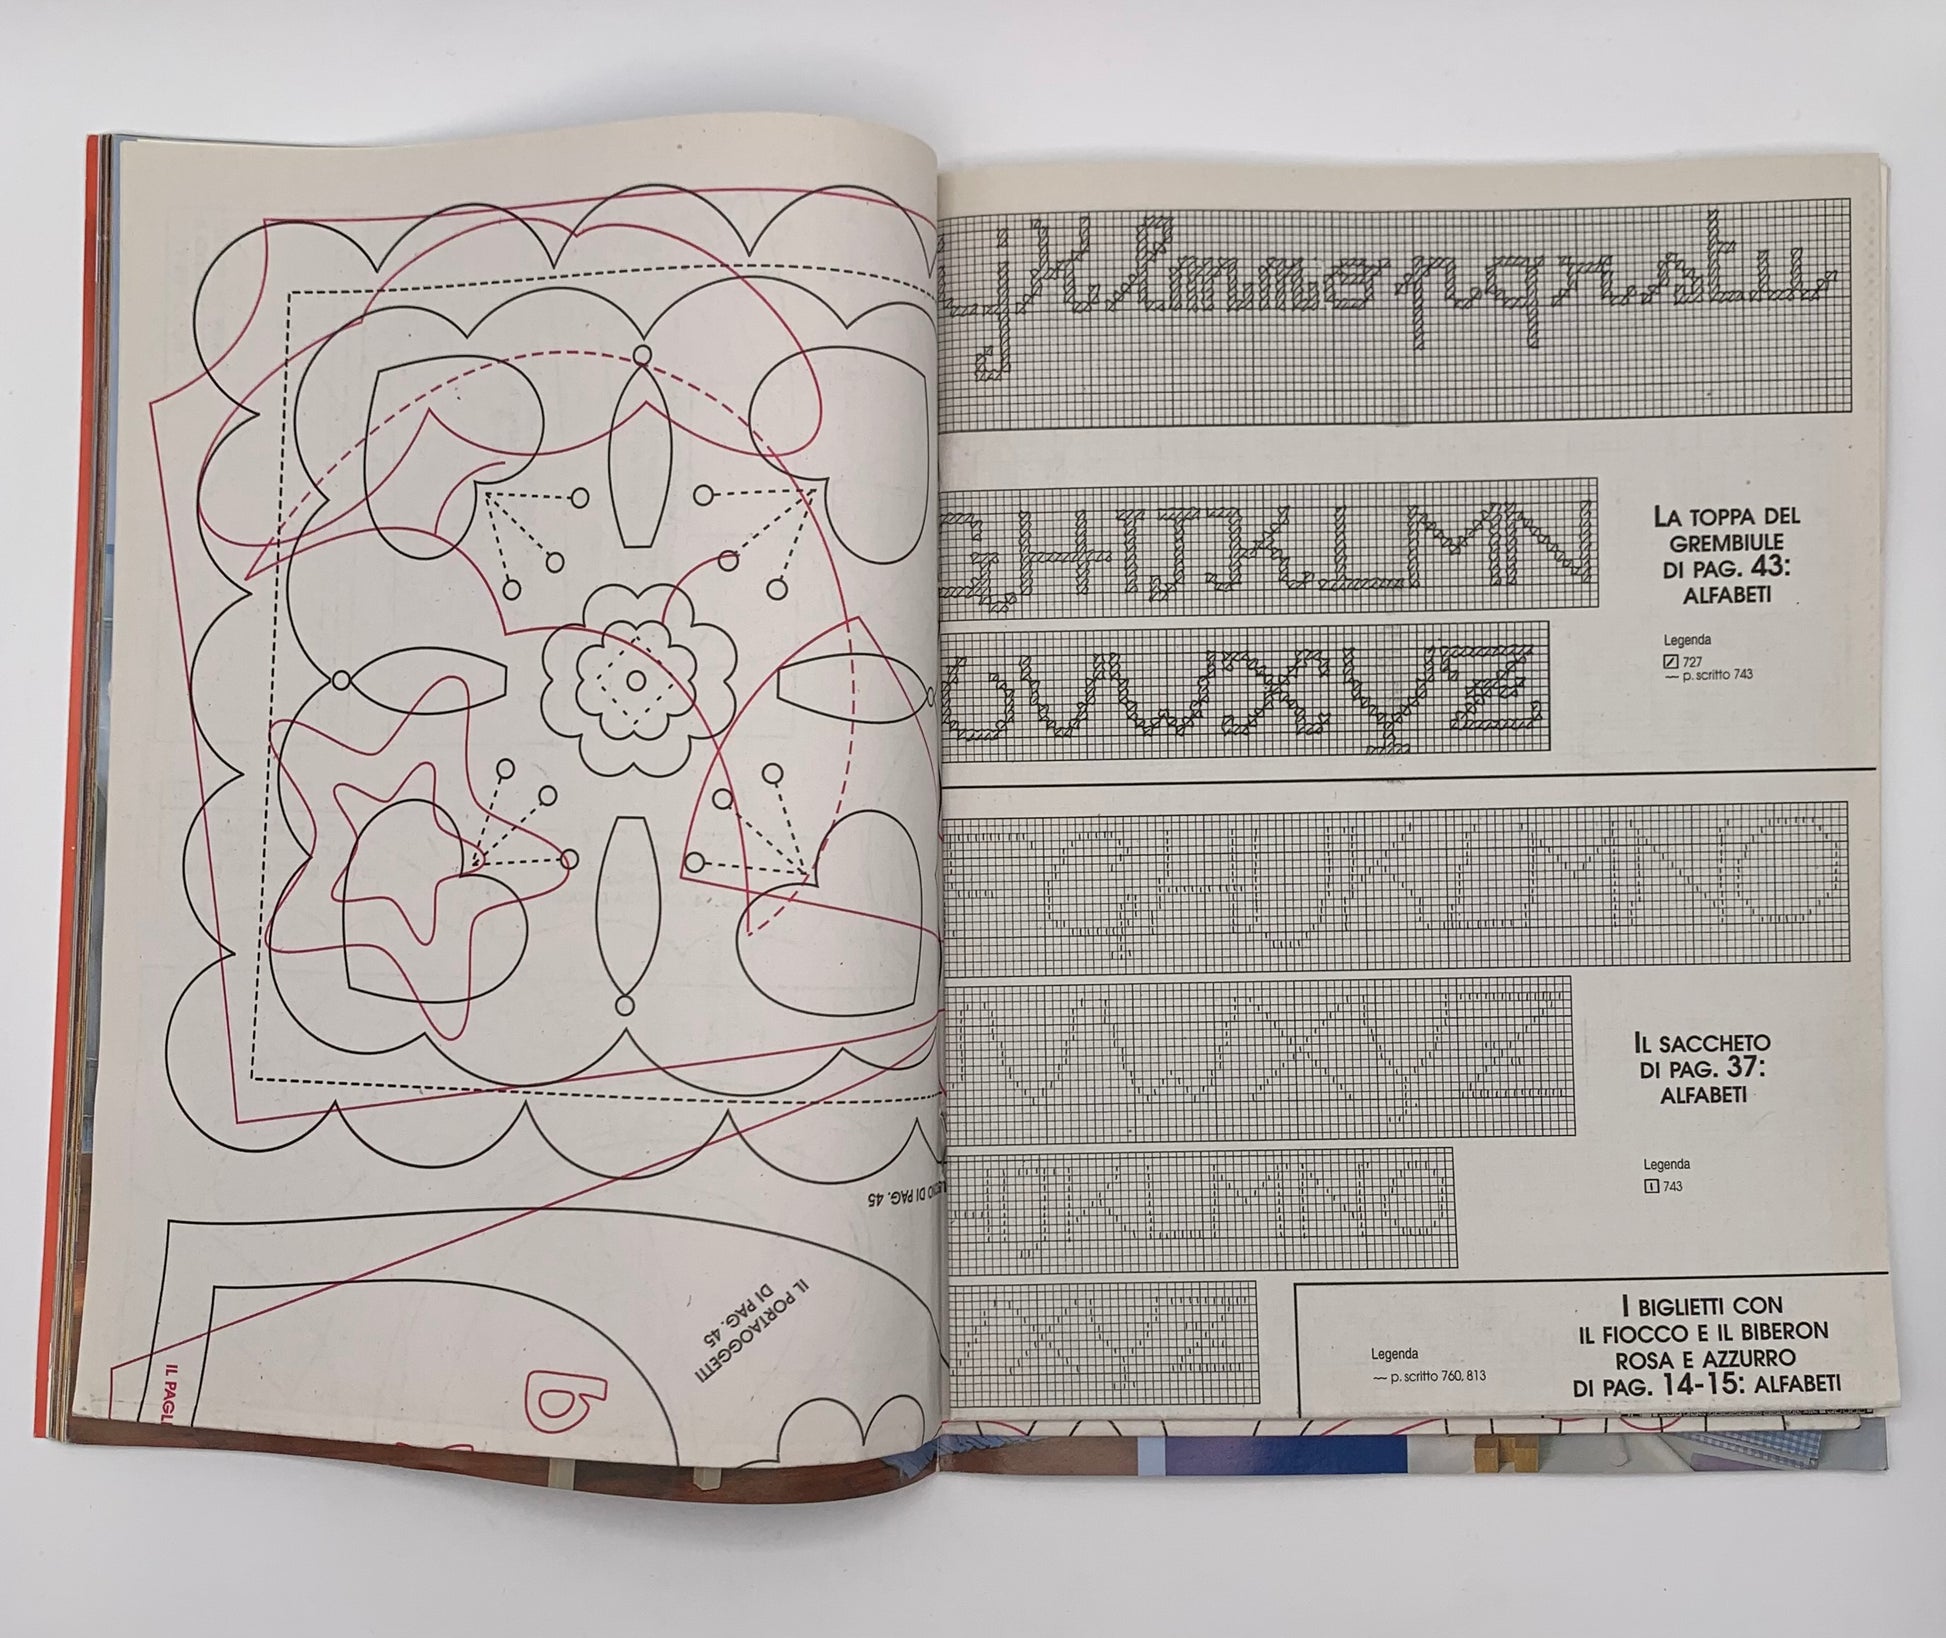 DI PAG. 45
IL PORTAOGGETTI
DI PAG. 45
IL PAGL
j k l m n o p q r s t u
G H I J K L M N
U V W X Y Z
LA TOPPA DEL
GREMBIULE
DI PAG. 43:
ALFABETI
Legenda
727
p. scritto 743
G H I J K L M N O
U V W X Y Z
IL SACCHETO
DI PAG. 37:
ALFABETI
Legenda
743
H I J K L M N O
X Y Z
Legenda
p. scritto 760, 813
I BIGLIETTI CON
IL FIOCCO E IL BIBERON
ROSA E AZZURRO
DI PAG. 14-15: ALFABETI